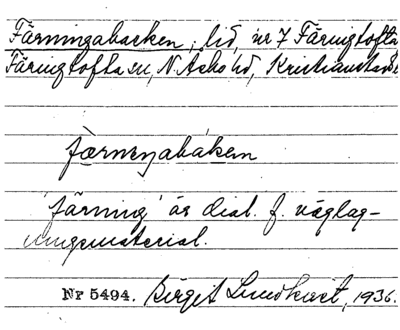 Färningabacken, lid, nr 7 Färingtofta
Färingtofta sn, N Åsbo hd, Kristianstads
færneŋabakεn
'färning' är dial. f. väglag-
ningsmaterial.
Nr 5494. Birgit Lundkvist, 1936.